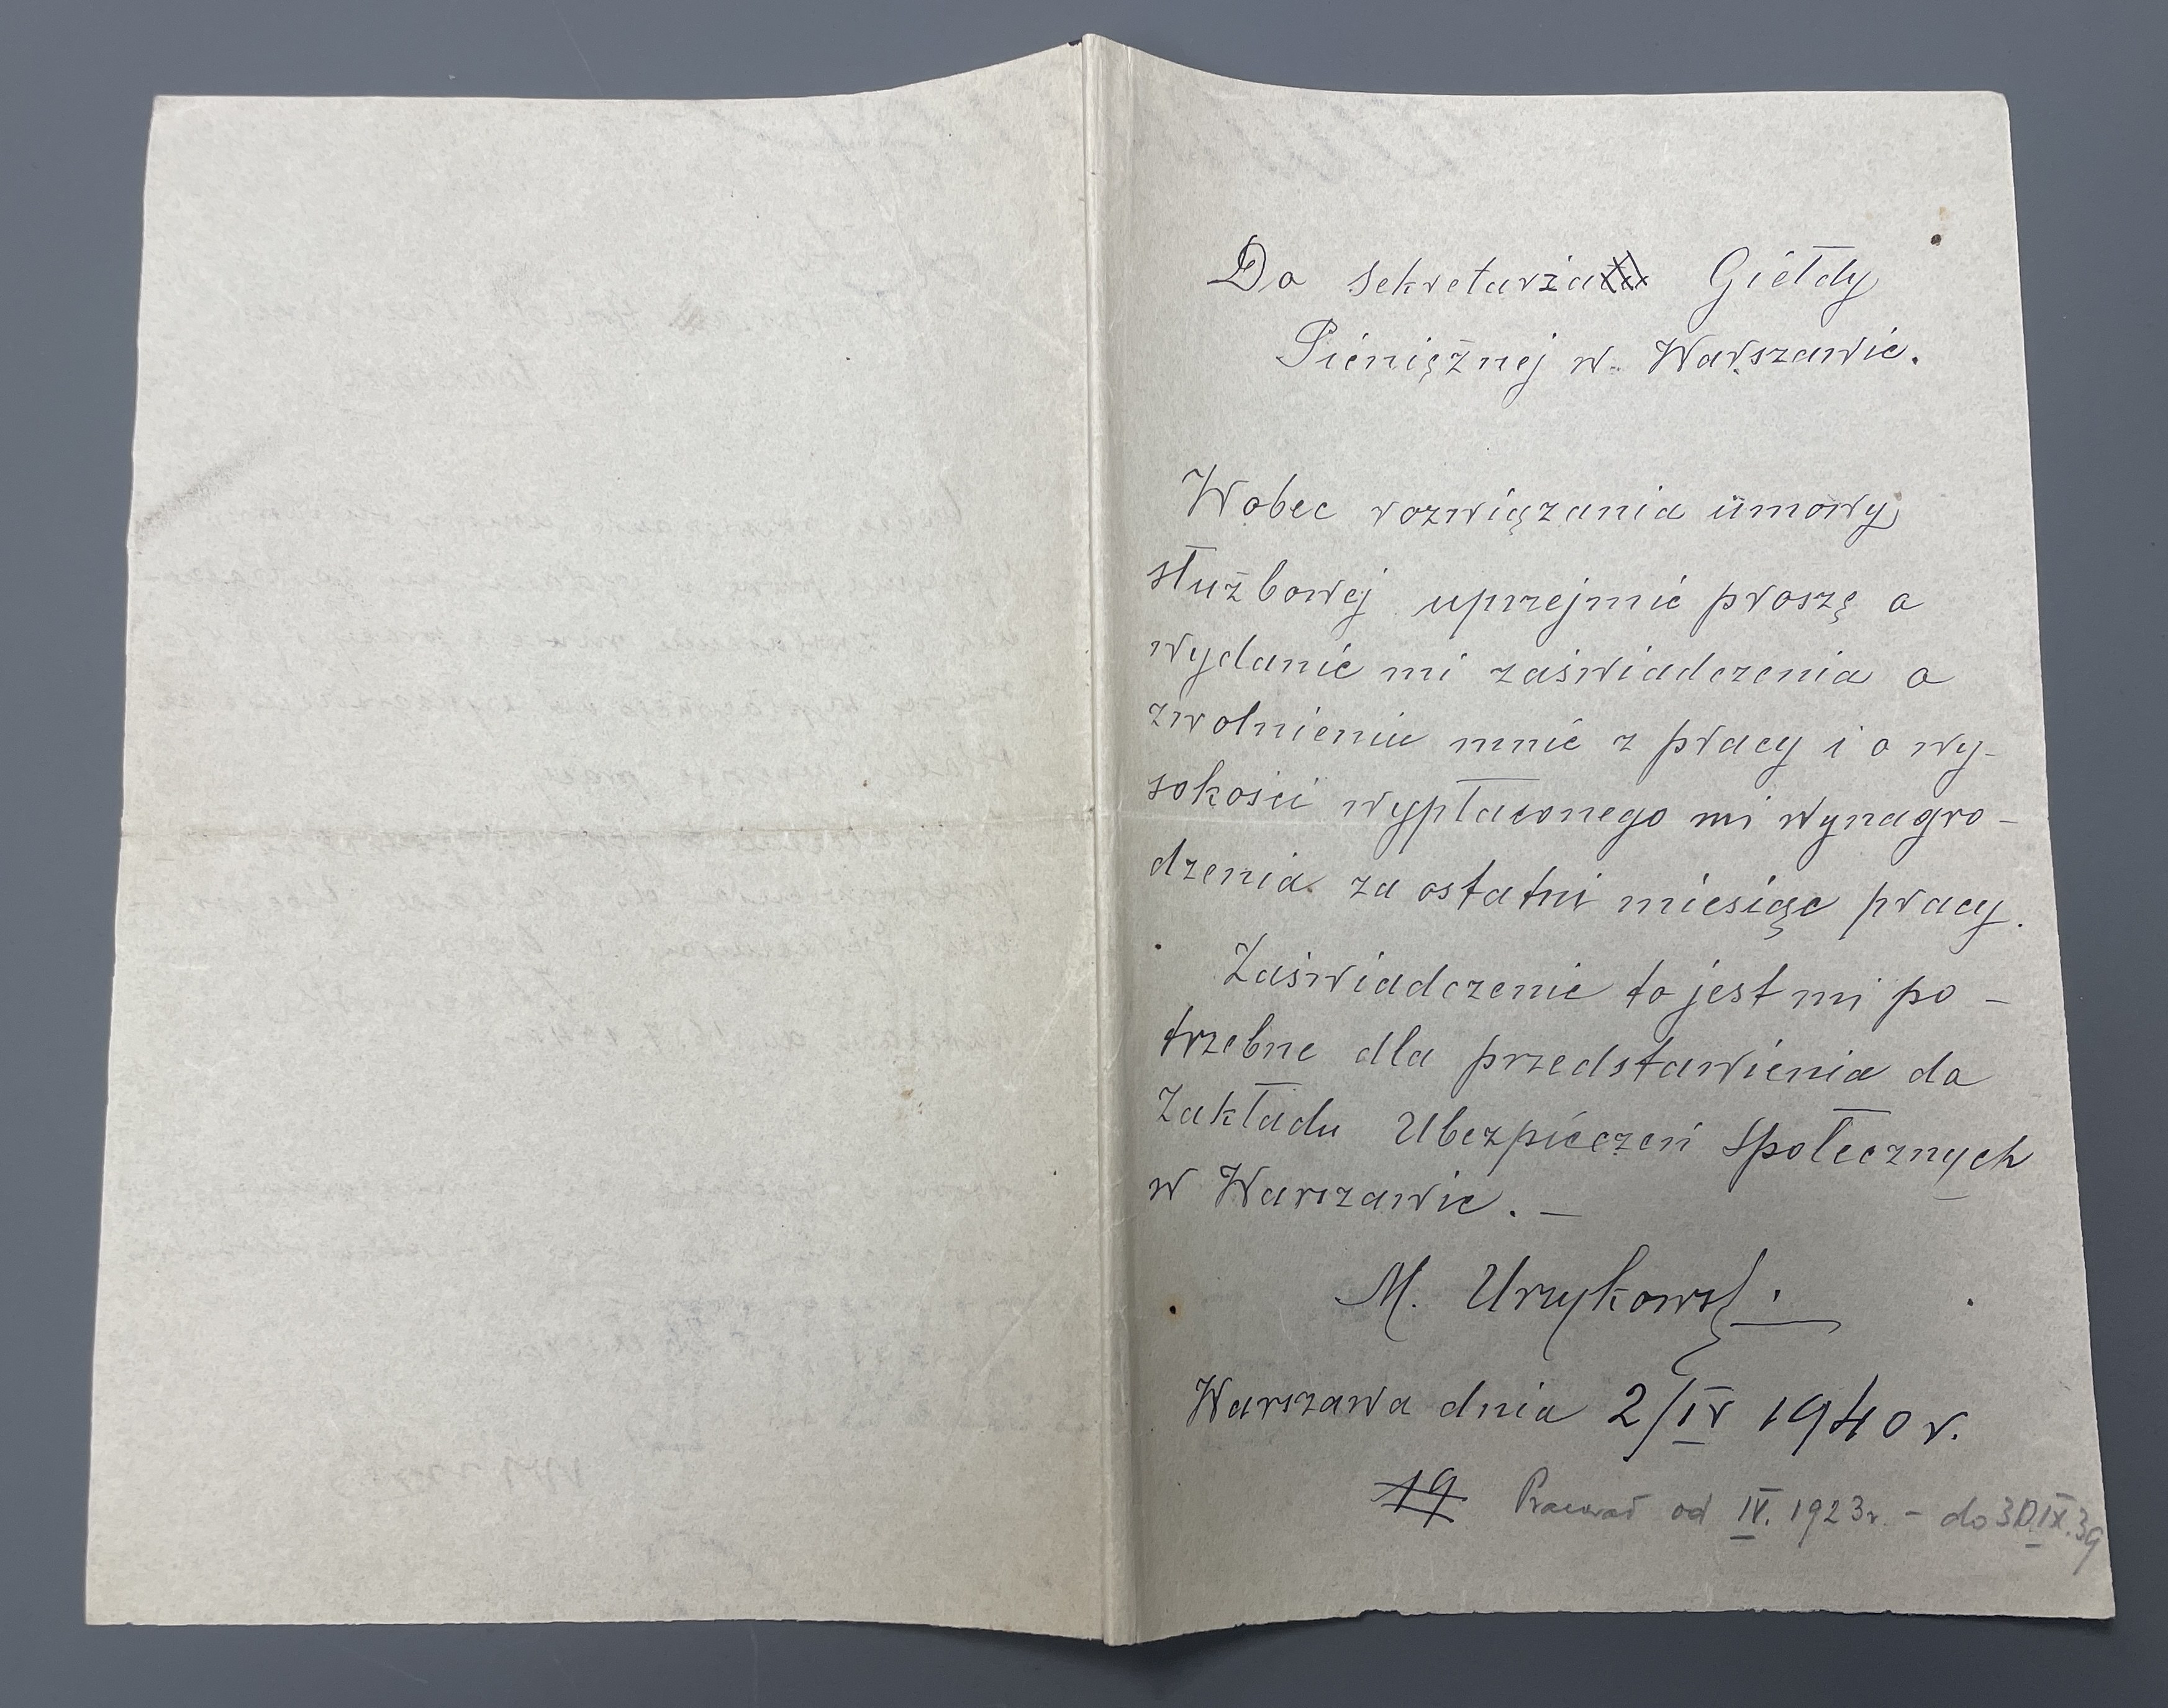 Do sekretarza Giełdy
Pieniężnej w. Warszawie.
Wobec rozwiązania umowy
służbowej uprzejmie proszę o
wydanie mi zaświadczenia o
zwolnieniu mnie z pracy i o wy-
sokości wypłaconego mi wynagro-
dzenia za ostatni miesiąc pracy.
Zaświadczenie to jest mi po-
trzebne dla przedstawienia do
Zakładu Ubezpieczeń Społecznych
w Warszawie. —
M.
Warszawa dnia 2/IV 1940 r.
19 Pracował od IV. 1923 r. – do 30.IX.39